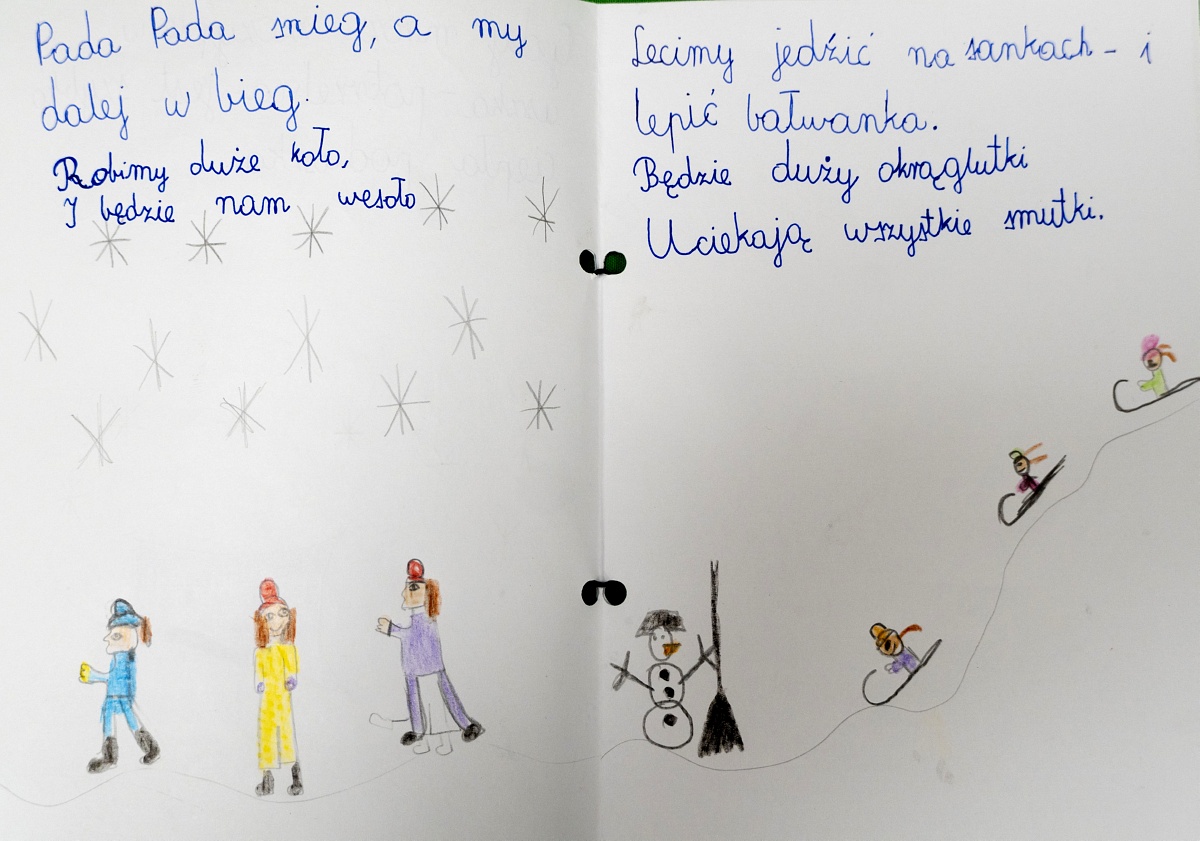 Pada Pada snieg, a my
dalej w bieg.
Robimy duże koło,
I będzie nam wesoło
Lecimy jedźić na sankach - i
lepić bałwanka.
Będzie duży okrąglutki
Uciekają wszystkie smutki.